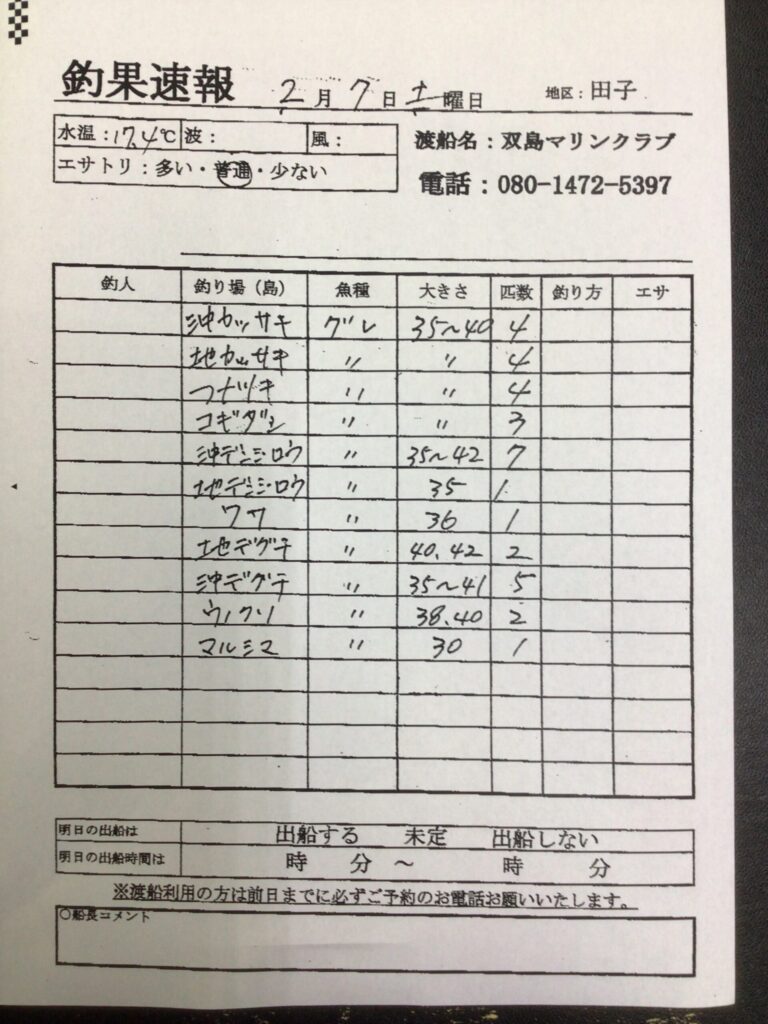 釣果速報 2月7日土曜日 地区：田子
水温：17.4℃ 波： 風： 渡船名：双島マリンクラブ
エサトリ：多い・普通・少ない 電話：080-1472-5397
釣人 釣り場（島） 魚種 大きさ 匹数 釣り方 エサ
沖カッサキ グレ 35〜40 4
地カッサキ 〃 〃 4
フナツキ 〃 〃 4
コギダシ 〃 〃 3
沖デンジロウ 〃 35〜42 7
地デンジロウ 〃 35 1
ワサ 〃 36 1
地デグチ 〃 40.42 2
沖デグチ 〃 35〜41 5
ウノクソ 〃 38.40 2
マルシマ 〃 30 1
明日の出船は 出船する 未定 出船しない
明日の出船時間は 時 分 〜 時 分
※渡船利用の方は前日までに必ずご予約のお電話お願いいたします。
○船長コメント